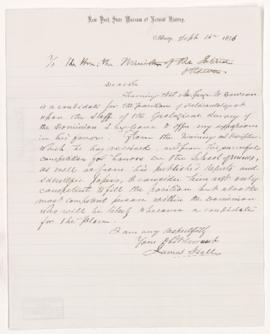 New York State Museum of Natural History,
Albany, Sept 15th 1876
To the Hon. the Minister of the Interior
Ottawa
Dear Sir
Learning that Mr George M. Dawson
is a candidate for the position of
upon the Staff of the Geological Survey of
the Dominion I beg leave to offer my suffrages
in his favor. From the training and discipline
which he has received, and from the successful
competition for honors in the School of mines,
as well as from his published reports and
scientific papers, I consider him not only
competent to fill the position but also the
most competent person within the Dominion
who will be likely to become a candidate
for the place.
I am very respectfully
Your obdt servant
James Hall